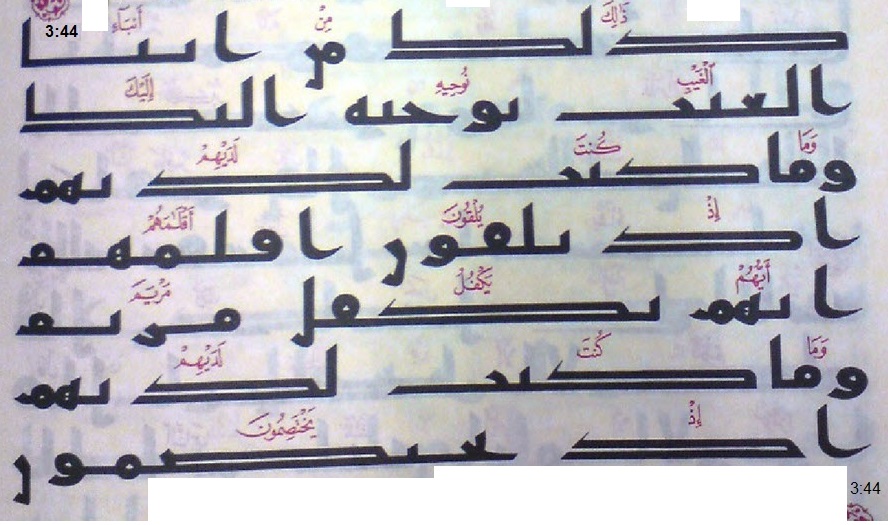 ذَٰلِكَ مِنْ أَنۢبَآءِ
3:44
ذلك من انبا
ٱلْغَيْبِ نُوحِيهِ إِلَيْكَ
الغيب نوحيه اليك
وَمَا كُنتَ لَدَيْهِمْ
وما كنت لديهم
إِذْ يُلْقُونَ أَقْلَٰمَهُمْ
اذ يلقون اقلمهم
أَيُّهُمْ يَكْفُلُ مَرْيَمَ
ايهم يكفل مريم
وَمَا كُنتَ لَدَيْهِمْ
وما كنت لديهم
إِذْ يَخْتَصِمُونَ
اذ يختصمون
3:44